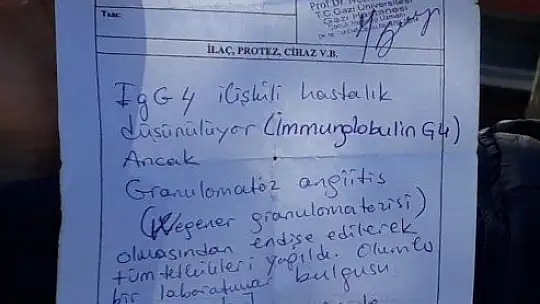 Tanı:
Prof. Dr.
T.C. Gazi Üniversitesi
Gazi Hastanesi
İLAÇ, PROTEZ, CİHAZ V.B.
IgG4 ilişkili hastalık
düşünülüyor (immunglobulin G4)
Ancak
Granulomatöz angiitis
(Wegener granulomatozisi)
olmasından endişe edilerek
tüm tetkikleri yapıldı. Olumlu
bir laboratuvar bulgusu